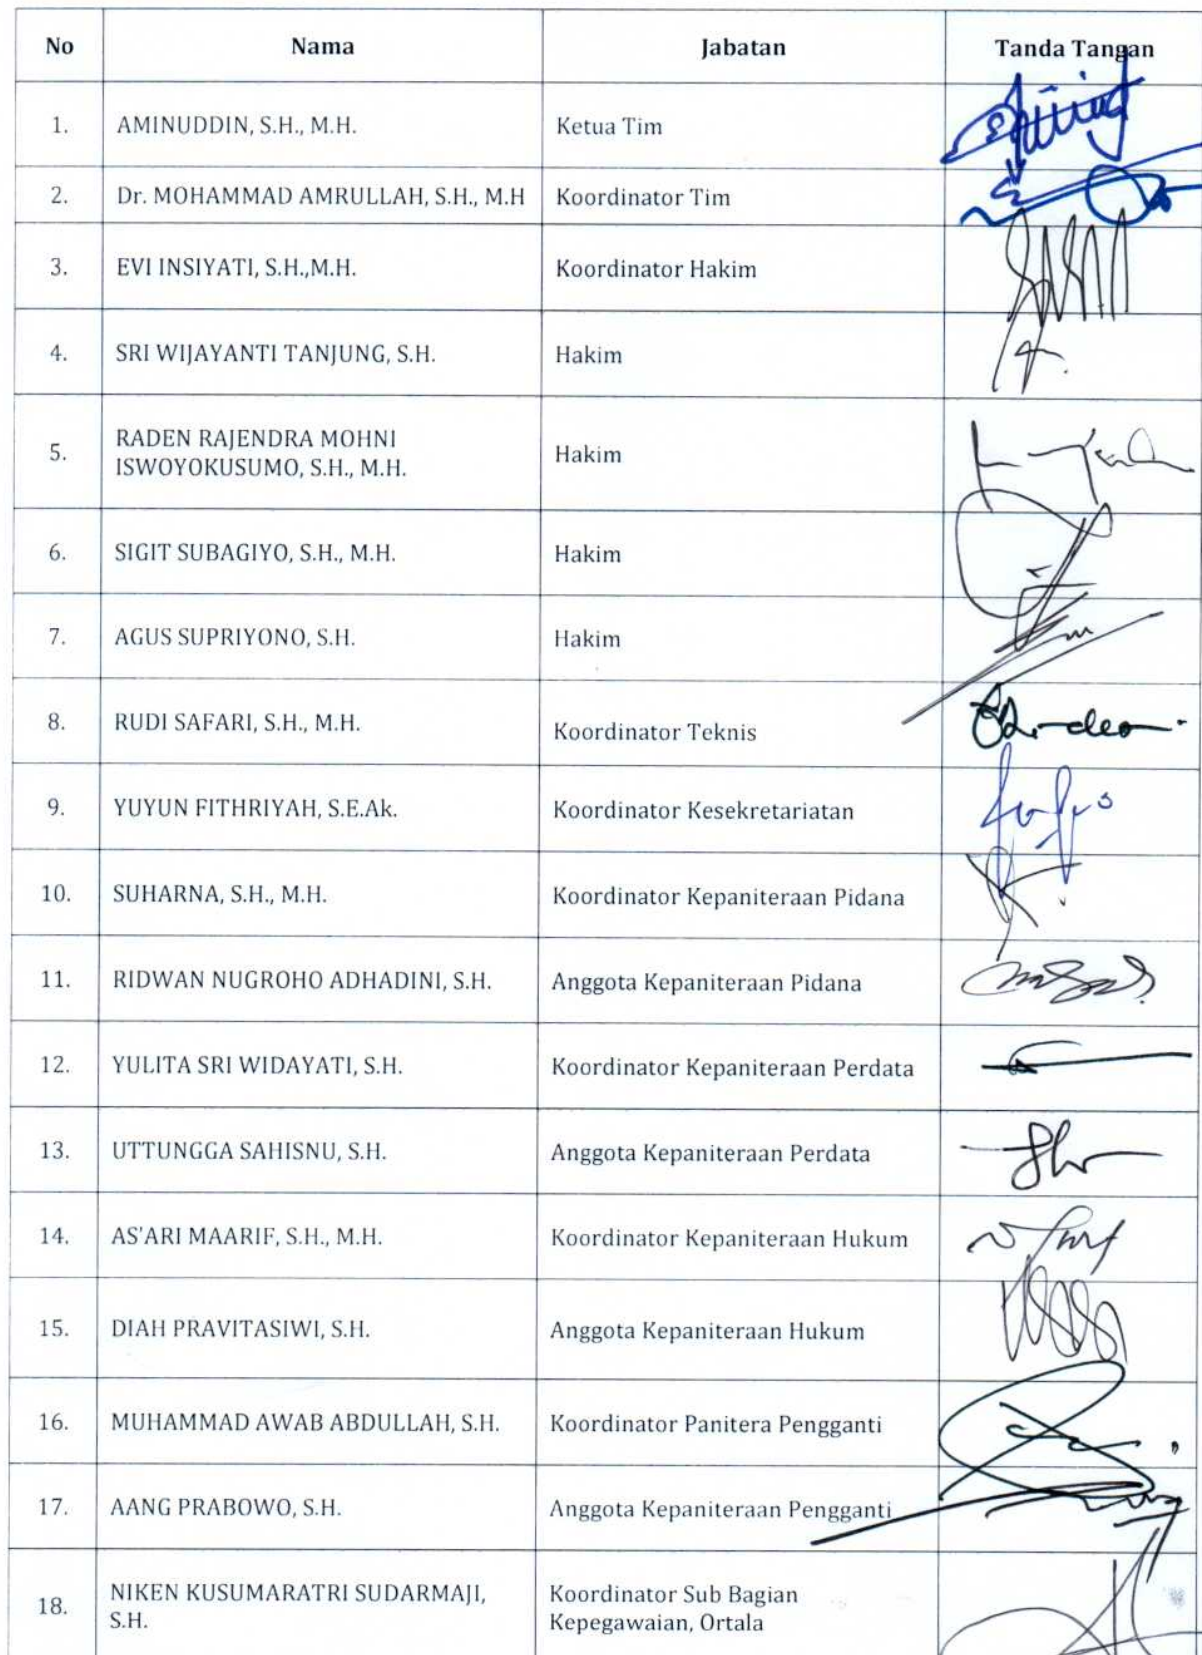 No Nama Jabatan Tanda Tangan
1. AMINUDDIN, S.H., M.H. Ketua Tim
2. Dr. MOHAMMAD AMRULLAH, S.H., M.H Koordinator Tim
3. EVI INSIYATI, S.H.,M.H. Koordinator Hakim
4. SRI WIJAYANTI TANJUNG, S.H. Hakim
5. RADEN RAJENDRA MOHNI
ISWOYOKUSUMO, S.H., M.H. Hakim
6. SIGIT SUBAGIYO, S.H., M.H. Hakim
7. AGUS SUPRIYONO, S.H. Hakim
8. RUDI SAFARI, S.H., M.H. Koordinator Teknis
9. YUYUN FITHRIYAH, S.E.Ak. Koordinator Kesekretariatan
10. SUHARNA, S.H., M.H. Koordinator Kepaniteraan Pidana
11. RIDWAN NUGROHO ADHADINI, S.H. Anggota Kepaniteraan Pidana
12. YULITA SRI WIDAYATI, S.H. Koordinator Kepaniteraan Perdata
13. UTTUNGGA SAHISNU, S.H. Anggota Kepaniteraan Perdata
14. AS'ARI MAARIF, S.H., M.H. Koordinator Kepaniteraan Hukum
15. DIAH PRAVITASIWI, S.H. Anggota Kepaniteraan Hukum
16. MUHAMMAD AWAB ABDULLAH, S.H. Koordinator Panitera Pengganti
17. AANG PRABOWO, S.H. Anggota Kepaniteraan Pengganti
18. NIKEN KUSUMARATRI SUDARMAJI,
S.H. Koordinator Sub Bagian
Kepegawaian, Ortala